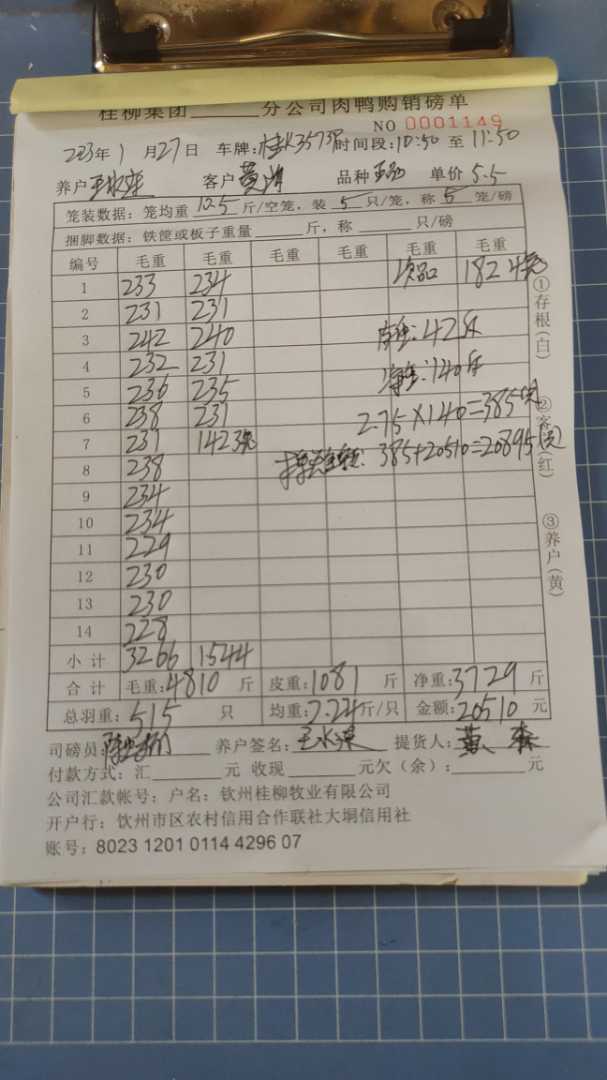 桂柳集团______分公司肉鸭购销磅单
NO 0001149
2023年 1 月27日 车牌:桂K3573P 时间段:10:50 至 11:50
养户 客户 品种 单价 5.5
笼装数据:笼均重 12.5 斤/空笼,装 5 只/笼,称 5 笼/磅
捆脚数据:铁筐或板子重量______斤,称______只/磅
编号 毛重 毛重 毛重 毛重 毛重 毛重
1 233 234 次品 182 4笼
2 231 231
3 242 240 皮重:42斤
4 232 231 净重:140斤
5 236 235
6 238 231 2.75×140=385元
7 231 142 3笼 385+20510=20895元
8 238
9 234
10 234
11 229
12 230
13 230
14 228
小计 3266 1544
合计 毛重:4810 斤 皮重:1081 斤 净重:3729 斤
总羽重:8515 只 均重:7.24斤/只 金额:20510 元
司磅员: 养户签名: 提货人:
付款方式:汇______元 收现______元欠(余):______元
公司汇款帐号:户名:钦州桂柳牧业有限公司
开户行:钦州市区农村信用合作联社大垌信用社
账号:8023 1201 0114 4296 07
①存根(白)
②客(红)
③养户(黄)